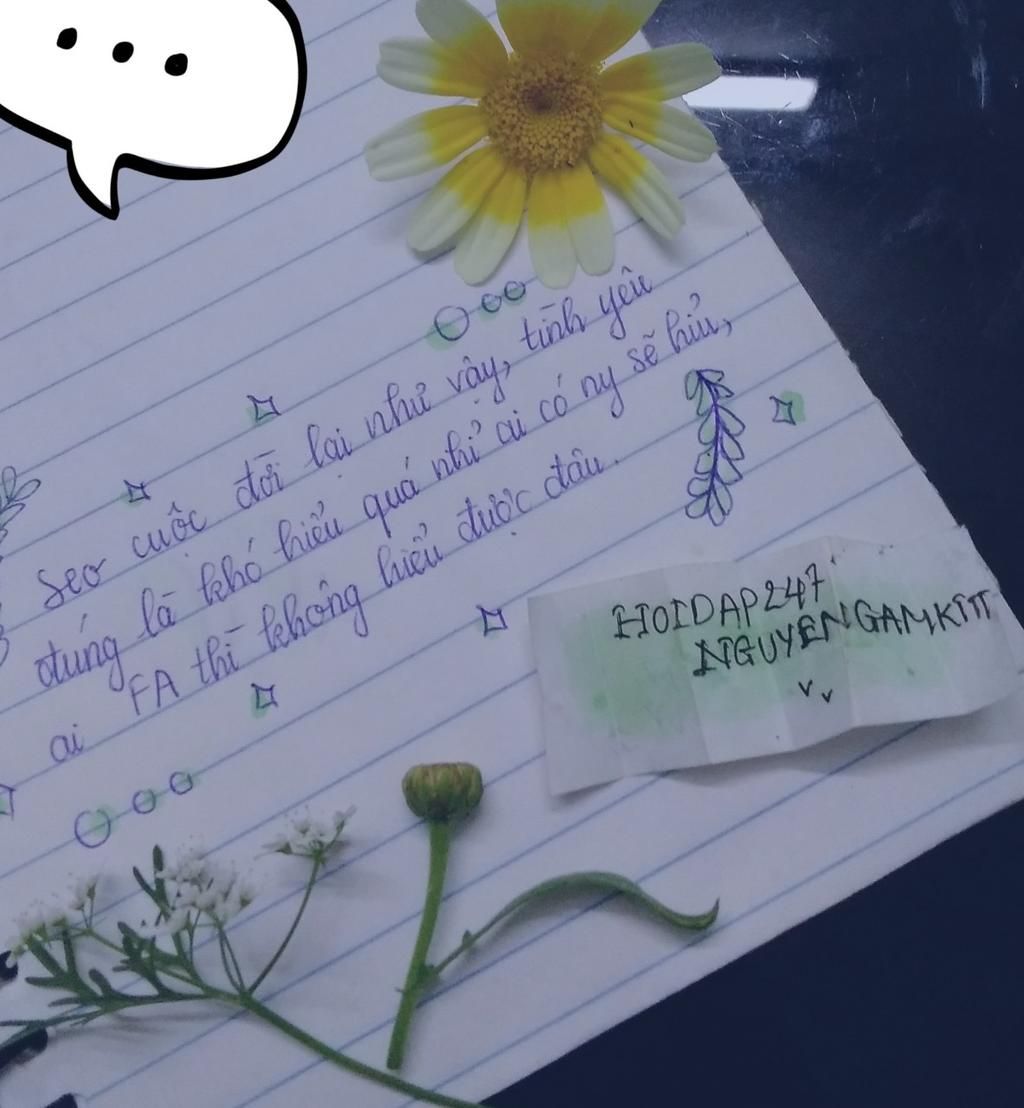 seo cuộc đời lại như vậy, tình yêu
đúng là khó hiểu quá nhỉ ai có ny sẽ hỉu,
ai FA thì không hiểu được đâu.
HOIDAP247
NGUYENGAMKITT